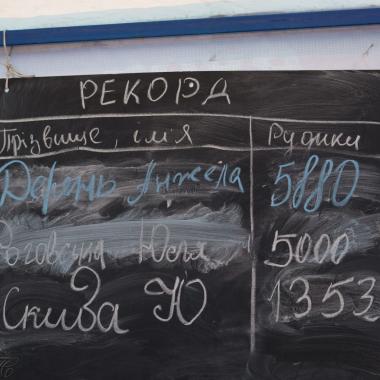 РЕКОРД
Прізвище, ім'я Рудики
Дерень Анжела 5880
Роговська Юля 5000
Скиба Ю 1353